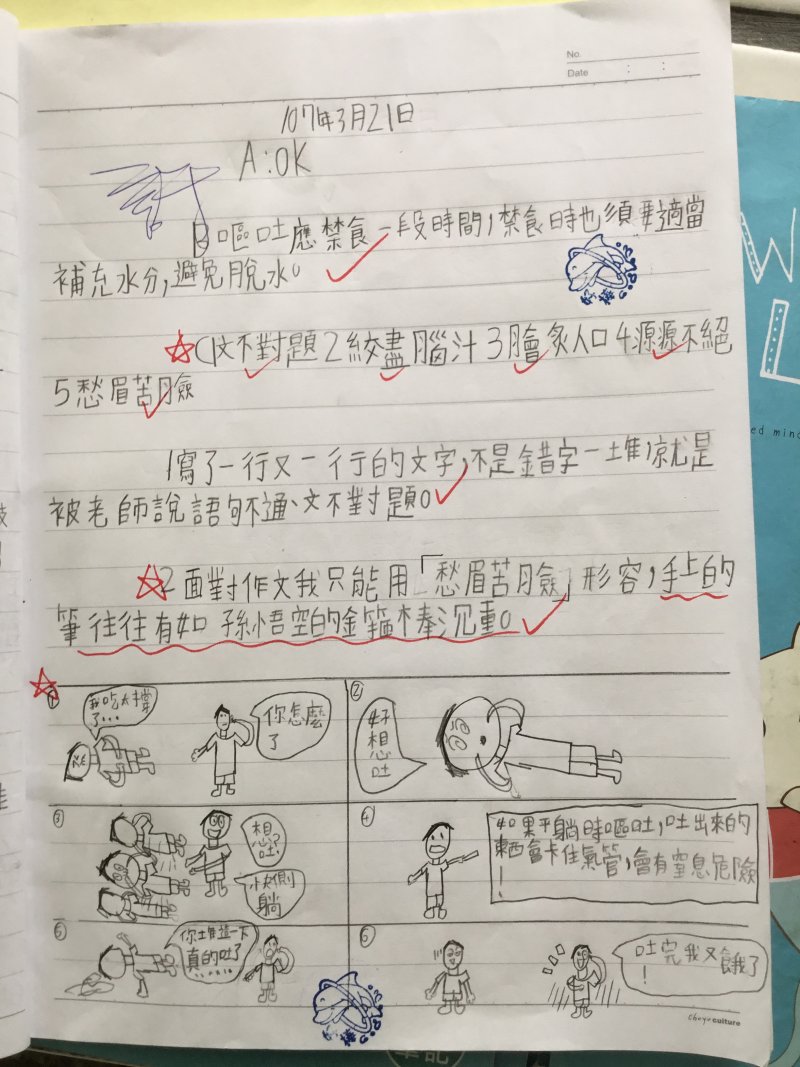 No.
Date : :
107年3月21日
A:OK
B嘔吐應禁食一段時間,禁食時也須要適當
補充水分,避免脫水。
☆C1文不對題2絞盡腦汁3膾炙人口4源源不絕
5愁眉苦臉
1寫了一行又一行的文字,不是錯字一堆,就是
被老師說語句不通、文不對題。
☆2面對作文我只能用「愁眉苦臉」形容,手上的
筆往往有如孫悟空的金箍棒沉重。
☆
①
我吃太撐
了...
你怎麼
了
②
好想吐
③
想吐?
快側躺
④
如果平躺時嘔吐,吐出來的
東西會卡住氣管,會有窒息危險
!
⑤
你這一下
真的吐了
......
⑥
吐完我又餓了
!
culture
W
L
ed mind
筆記